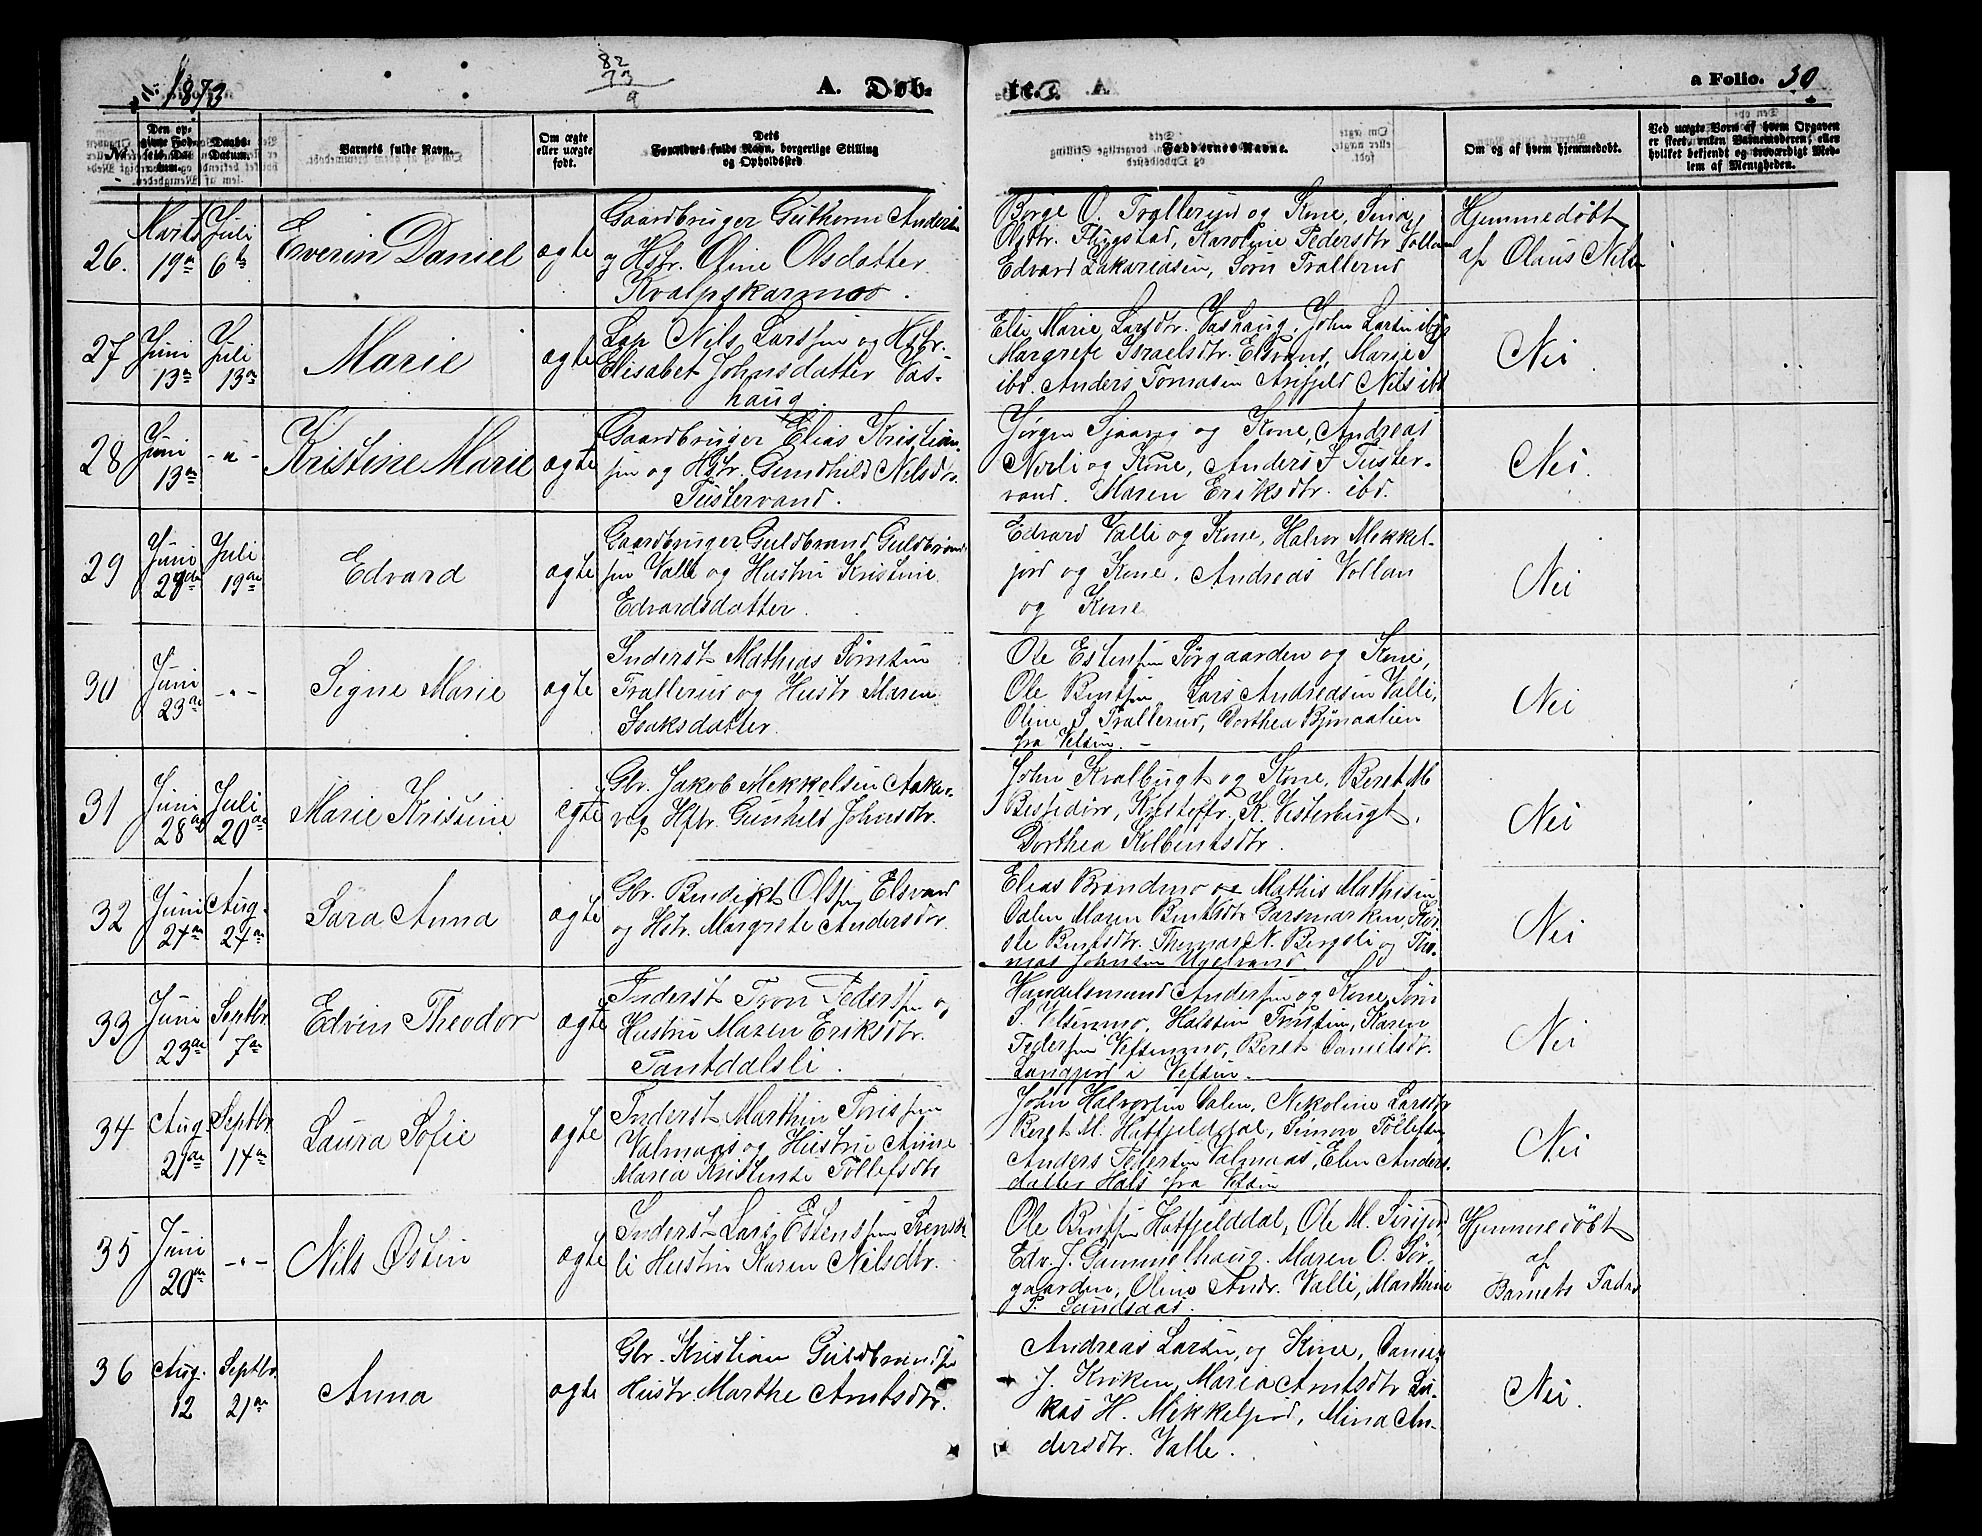 1873
82
73
9
A. Døb-
te.
a Folio. 30
No.
Den op-
givne Fød-
sels Da-
tum.
Daabs-
Datum.
Barnets fulde Navn.
Om ægte
eller uægte
født.
Dets
Forældres fulde Navn, borgerlige Stilling
og Opholdssted
Faddernes Navne.
Om og af hvem hjemmedøbt.
Ved uægte Børn af hvem Opgaven
er skeet, enten Barnemoderen, eller
hvilket bekjendt og troværdigt Med-
lem af Menigheden.
26. Marts 19de Juli 6te Everin Daniel ægte
Gaardbruger Guthorm Anders.
og Hstr. Oline Olsdatter
Kvalpskarmoo.
Børge O. Trallerud og Kone,
Olsdtr. Flugstad, Karoline Pedersdtr Vollan
Edvard Zakariasen, Sørn Trallerud
Hjemmedøbt
af Olaus Nilsen
27 Juni 13de Juli 13de Marie ægte
Lap Nils Larssen og Hstr.
Elisabet Johnsdatter Vas-
haug.
Else Marie Larsdtr. Vashaug, John Larsen ibd
Margrete Israelsdtr. Elsvand, Marie J
ibd. Anders Tomasen Arefjeld Nils ibd
Nei
28 Juni 13de - " - Kristine Marie ægte
Gaardbruger Elias Kristian-
sen og Hstr. Gundhild Nilsdtr.
Tustervand.
Jørgen Sjaavig og Kone, Andreas
Norli og Kone, Anders J Tuster-
vand. Maren Eriksdtr. ibd.
Nei.
29 Juni 29de Juli 19de Edvard ægte
Gaardbruger Guldbrand Guldbrand-
sen Valli og Hustru Kristine
Edvardsdatter.
Edvard Valli og Kone, Halvor Mikkel-
jord og Kone, Andreas Vollan
og Kone
Nei
30 Juni 23de - " - Signe Marie ægte
Inderst Mathias Sørnsen
Trallerud og Hustr. Maren
Isaksdatter.
Ole Estensen Sørgaarden og Kone,
Ole Bentsen, Lars Andreasen Valli,
Oline S. Trallerud, Dorthea Bjønaalien
fra Vefsen. -
Nei
31 Juni 28de Juli 20de Marie Kristine ægte
Gbr. Jakob Mikkelsen Aakar-
vig Hstr. Gunhild Johnsdtr.
John Kralbugt og Kone, Beret M.
K. Vesterbugt,
Dorthea Kolbentsdtr.
Nei
32 Juni 24de Aug. 24de Sara Anna ægte
Gbr. Bendikt Olsen Elsvand
og Hstr. Margrete Andersdtr.
Elias Brændmo og Mathis Mathisen
Dalen Maren Bentsdtr. Garsmarken, Kir-
ste Bentsdtr. Thomas N. Bergsli og Tho-
mas Johnsen Ugelvand.
Nei
33 Juni 23de Septbr. 7de Edvin Theodor ægte
Inderst Tron Pedersen og
Hustru Maren Eriksdtr.
Pantdalsli.
Handelsmand Andersen og Kone, Sørn
S. Vefsenmo, Halstein Torstein, Karen
Pedersen Vefsenmo, Beret Danielsdtr.
Langjord i Vefsen.
Nei
34 Aug. 21de Septbr. 14de Laura Sofie ægte
Inderst Marthin Torissen
Valmaas og Hustru Anne
Maria Kristense Tollefsdtr
John Halvorsen Dalen, Nikoline Larsdtr
Beret M. Hatfjelddal, Simon Tollefsen
Anders Pedersen Valmaas, Elen Anders-
datter Hals fra Vefsen
Nei
35 Juni 20de - " - Nils Østin ægte
Inderst Lars Estensen Svensk-
li Hustru Karen Nilsdtr.
Ole Bentsen Hatfjelddal, Ole M. Sirijord
Edv. J. Gammelhaug. Maren O. Sør-
gaarden, Oline Andr. Valli, Marthine
P. Sandsaas.
Hjemmedøbt
af
Barnets Fader
36 Aug. 12 Septbr. 21de Anna ægte
Gbr. Kristian Guldbrandsen
Hustr. Marthe Arntsdtr.
Andreas Larsen og Kone, Daniel
J. Kroken, Maria Arntsdtr. Lu-
kas H. Mikkeljord, Mina An-
dersdtr. Valle.
Nei.